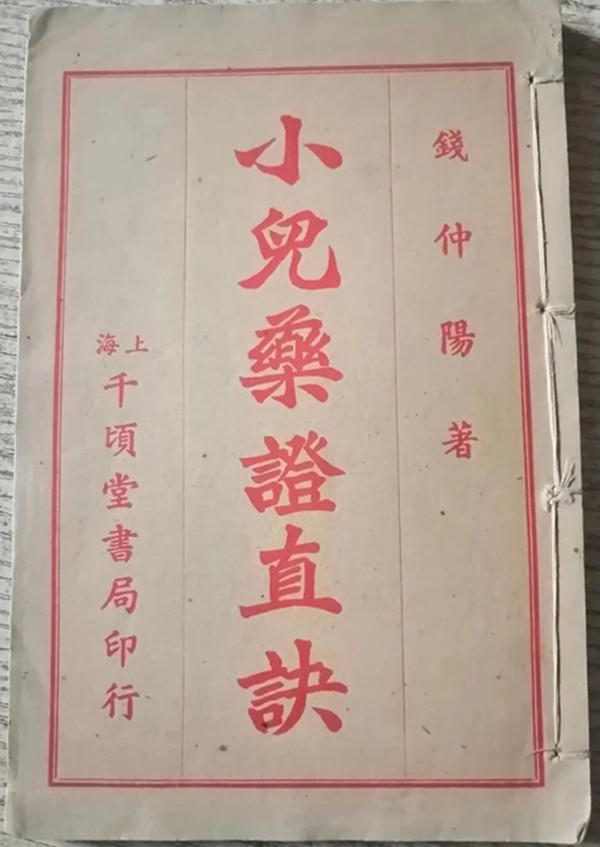 錢仲陽著
小兒藥證直訣
上海
千頃堂書局印行